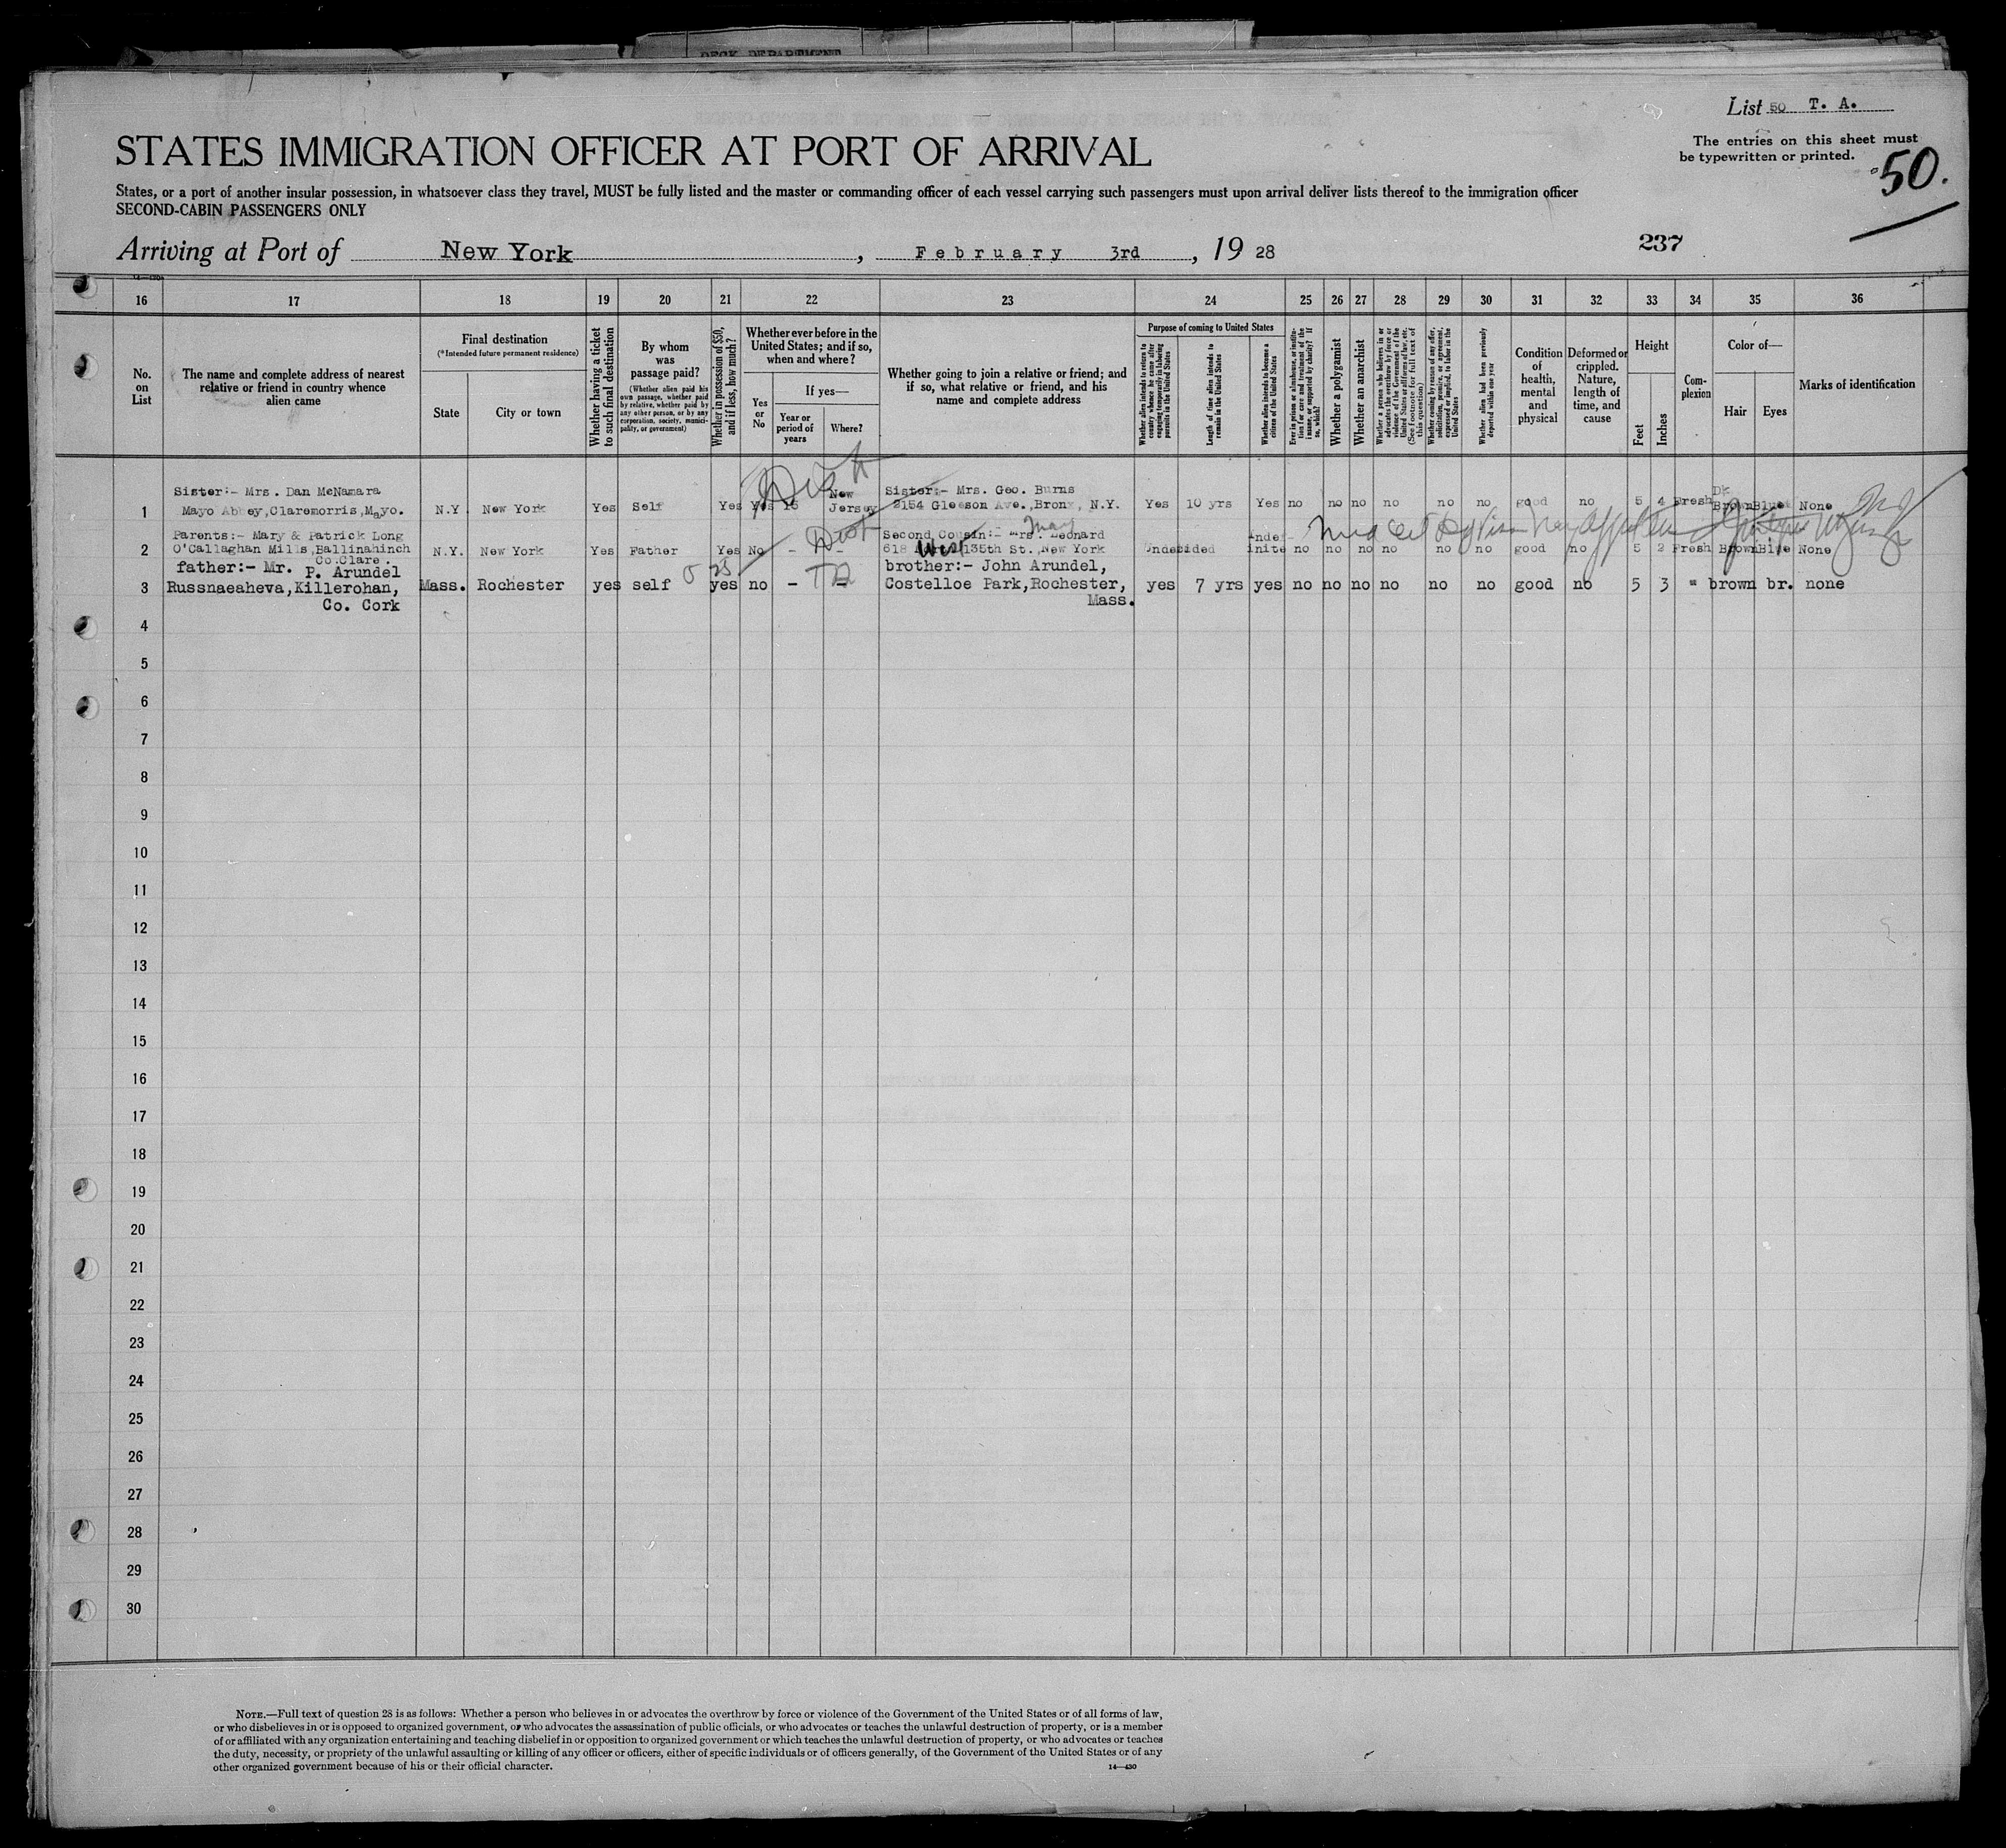 DECK DEPARTMENT
List 50 T. A.
The entries on this sheet must
be typewritten or printed.
50.
STATES IMMIGRATION OFFICER AT PORT OF ARRIVAL
States, or a port of another insular possession, in whatsoever class they travel, MUST be fully listed and the master or commanding officer of each vessel carrying such passengers must upon arrival deliver lists thereof to the immigration officer
SECOND-CABIN PASSENGERS ONLY
Arriving at Port of New York, February 3rd, 19 28
237
16 17 18 19 20 21 22 23 24 25 26 27 28 29 30 31 32 33 34 35 36
No. on List
The name and complete address of nearest relative or friend in country whence alien came
Final destination
(*Intended future permanent residence)
State
City or town
Whether having a ticket to such final destination
By whom was passage paid?
(Whether alien paid his own passage, whether paid by relative, whether paid by any other person, or by any corporation, society, municipality, or government)
Whether in possession of $50, and if less, how much?
Whether ever before in the United States; and if so, when and where?
Yes or No
If yes—
Year or period of years
Where?
Whether going to join a relative or friend; and if so, what relative or friend, and his name and complete address
Purpose of coming to United States
Whether alien intends to return to country whence he came after engaging temporarily in laboring pursuits in the United States
Length of time alien intends to remain in the United States
Whether alien intends to become a citizen of the United States
Ever in prison or almshouse, or institution for care and treatment of the insane, or supported by charity? If so, which?
Whether a polygamist
Whether an anarchist
Whether a person who believes in or advocates the overthrow by force or violence of the Government of the United States or all forms of law, etc. (See footnote for full text of this question)
Whether coming by reason of any offer, solicitation, promise, or agreement, expressed or implied, to labor in the United States
Whether alien had been previously deported within one year
Condition of health, mental and physical
Deformed or crippled. Nature, length of time, and cause
Height
Feet
Inches
Complexion
Color of—
Hair
Eyes
Marks of identification
Sister:- Mrs. Dan McNamara
1 Mayo Abbey,Claremorris,Mayo. N.Y. New York Yes Self Yes Yes 15 New Jersey Sister:- Mrs. Geo. Burns
2154 Gleeson Ave.,Bronx, N.Y. Yes 10 yrs Yes no no no no no no good no 5 4 Fresh Dk. Brown Blue None
Parents:- Mary & Patrick Long Second Cousin:- Mrs. May Leonard
2 O'Callaghan Mills,Ballinahinch Co.Clare. N.Y. New York Yes Father Yes No - - 618 West 135th St.,New York Undecided Indefinite no no no no no no good no 5 2 Fresh Brown Blue None
father:- Mr. P. Arundel brother:- John Arundel,
3 Russnaeaheva,Killerohan, Mass. Rochester yes self 25 yes no - - Costelloe Park,Rochester, yes 7 yrs yes no no no no no no good no 5 3 " brown br. none
Co. Cork Mass.
4
5
6
7
8
9
10
11
12
13
14
15
16
17
18
19
20
21
22
23
24
25
26
27
28
29
30
NOTE.—Full text of question 28 is as follows: Whether a person who believes in or advocates the overthrow by force or violence of the Government of the United States or of all forms of law,
or who disbelieves in or is opposed to organized government, or who advocates the assassination of public officials, or who advocates or teaches the unlawful destruction of property, or is a member
of or affiliated with any organization entertaining and teaching disbelief in or opposition to organized government or which teaches the unlawful destruction of property, or who advocates or teaches
the duty, necessity, or propriety of the unlawful assaulting or killing of any officer or officers, either of specific individuals or of officers generally, of the Government of the United States or of any
other organized government because of his or their official character.
14—430